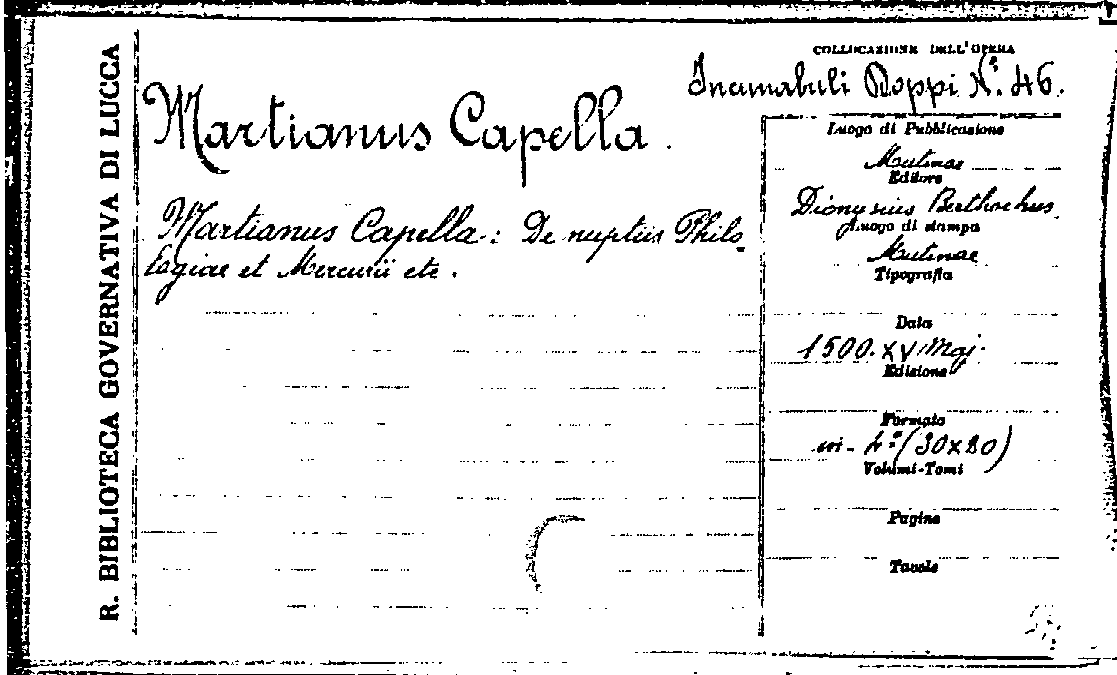 R. BIBLIOTECA GOVERNATIVA DI LUCCA
COLLOCAZIONE DELL'OPERA
Incunabuli Doppi N.º 46.
Martianus Capella.
Martianus Capella: De nuptiis Philo-
logiae et Mercurii etc.
Luogo di Pubblicazione
Mutinae
Editore
Dionysius Berthochus
Luogo di stampa
Mutinae
Tipografia
Data
1500. XV Maj.
Edizione
Formato
in- 4º (30x20)
Volumi-Tomi
Pagine
Tavole